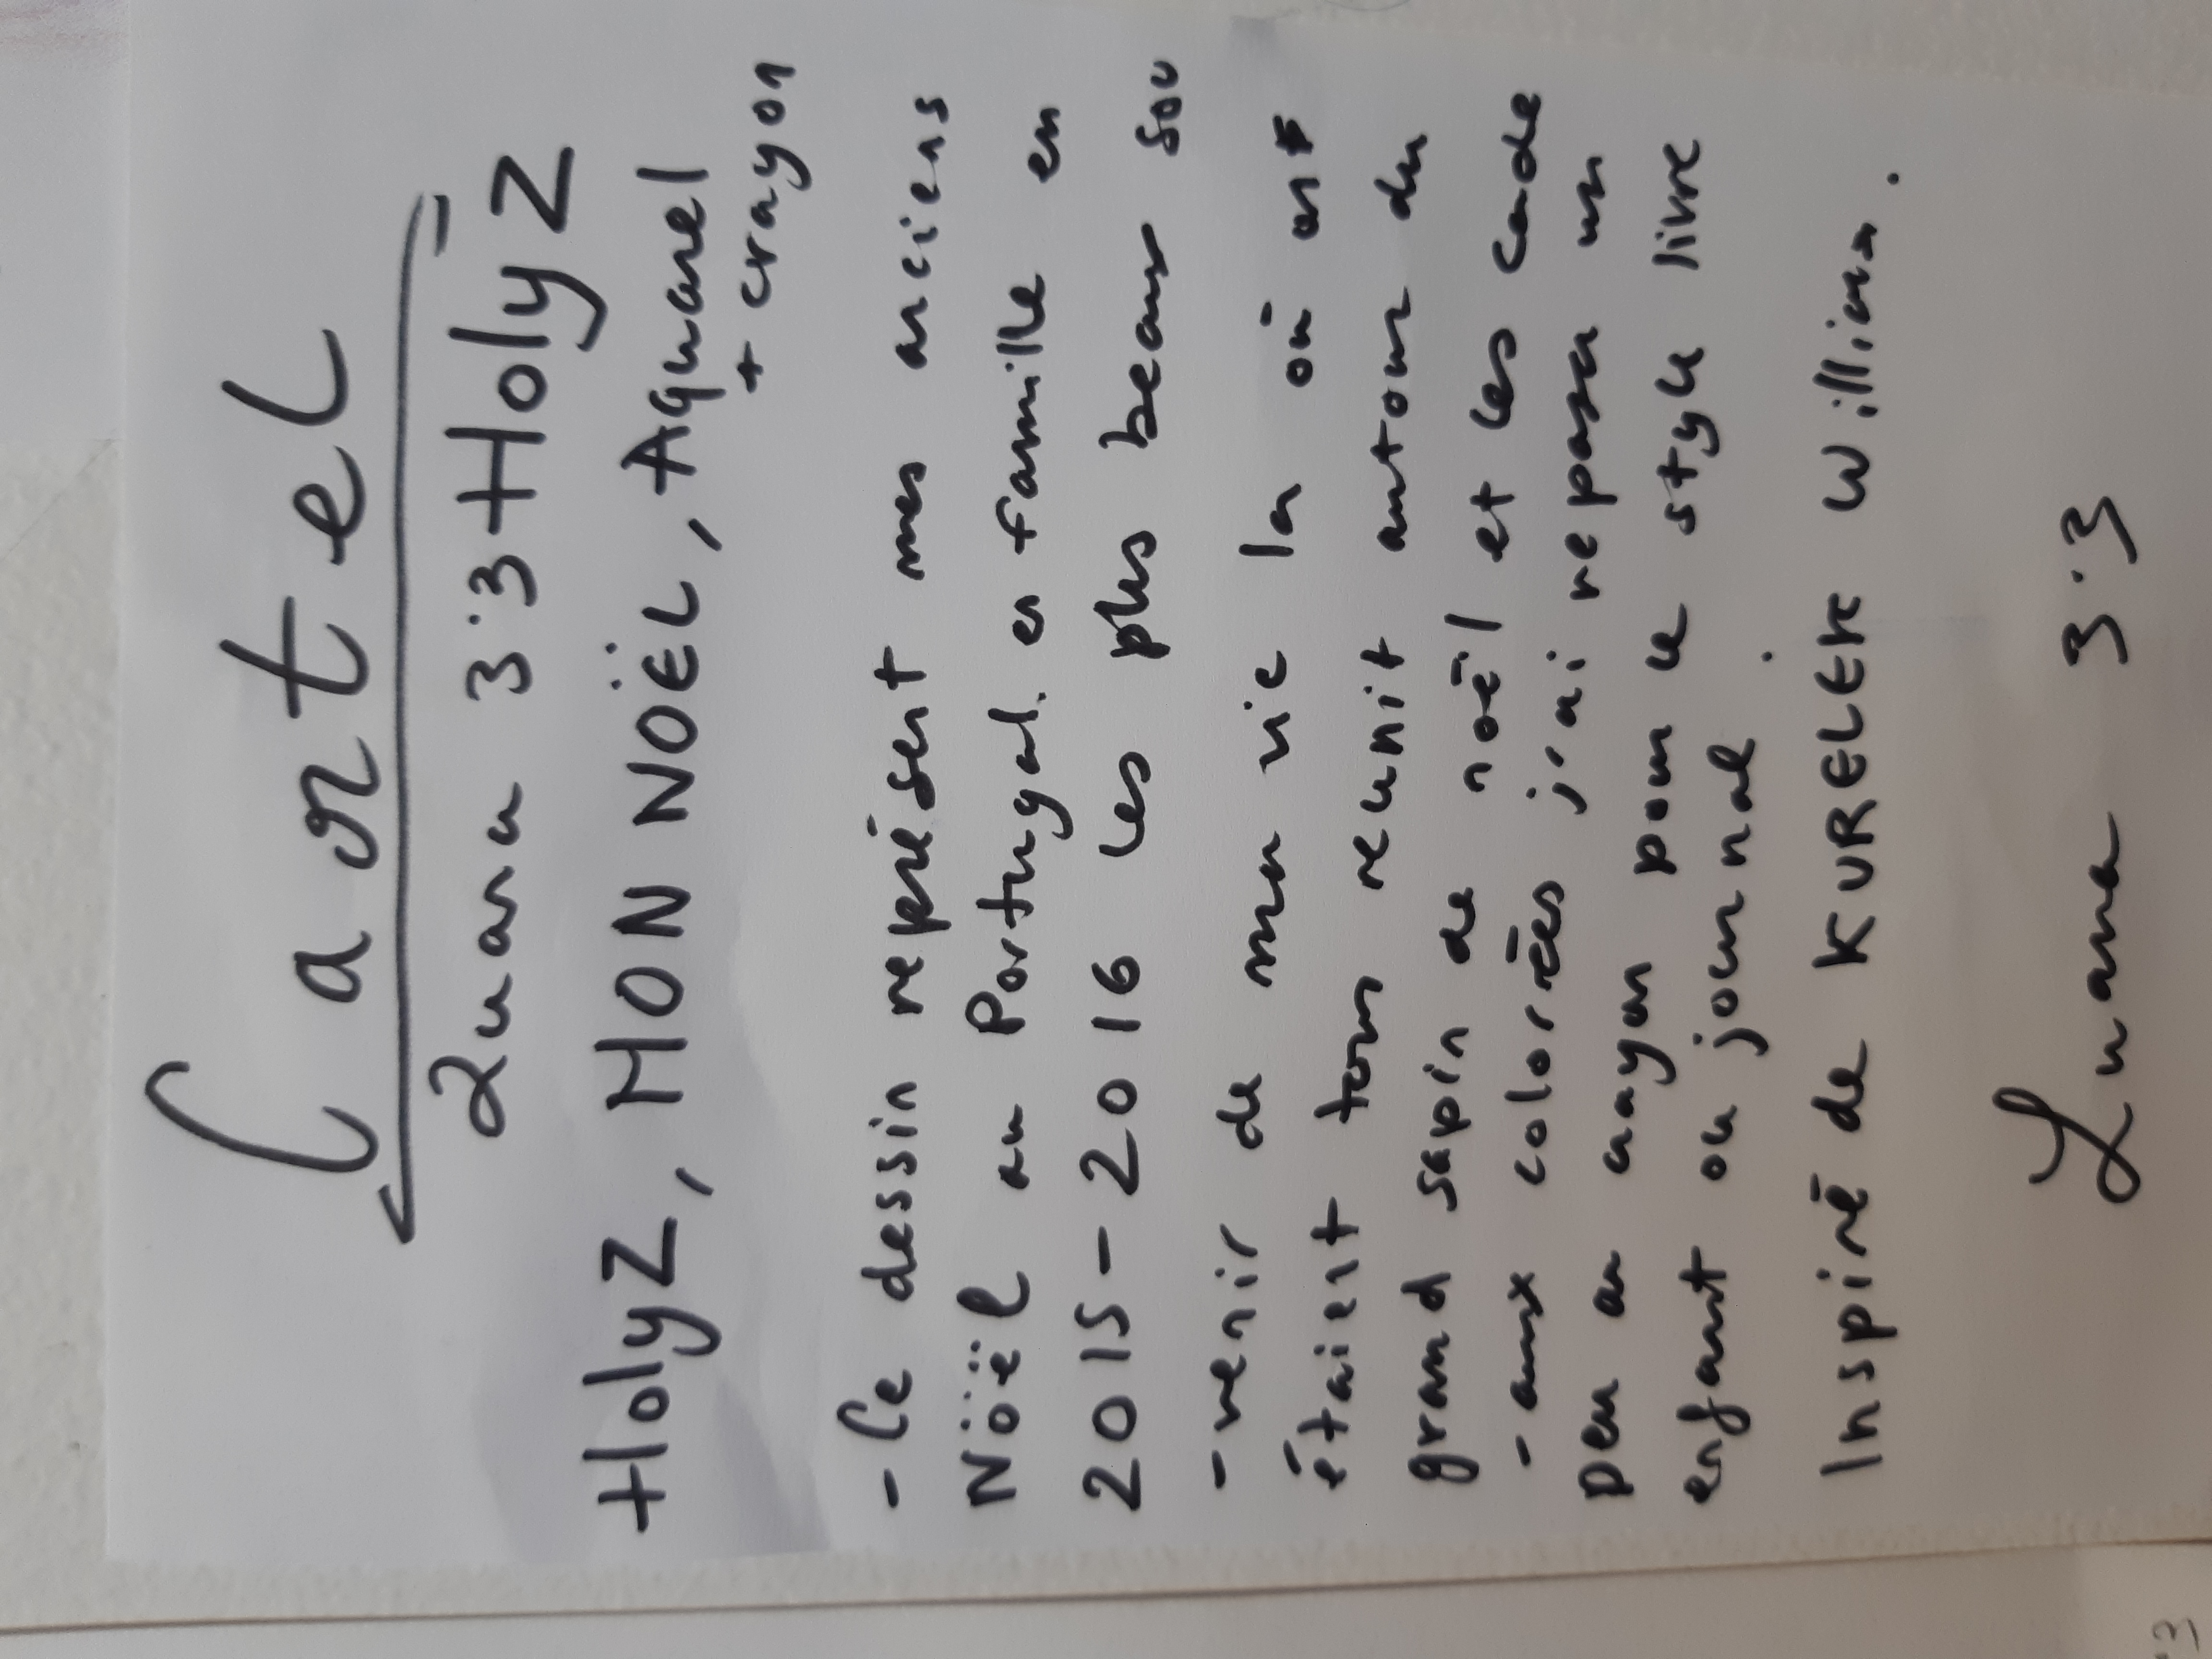 Cartel
Luana 3:3 HolyZ
HolyZ, MON NÖËL, Aquarel
+ crayon
- Ce dessin représent mes anciens
Nöël au Portugal. en famille en
2015-2016 les plus beaux sou
-venir de ma vie la où ont
étaient tous reunit autour du
grand sapin de noël et les cade
-aux colorées j'ai repassr un
peu au crayon pour le style livre
enfant ou journal.
Inspiré de KURELEK William.
Luana 3.3